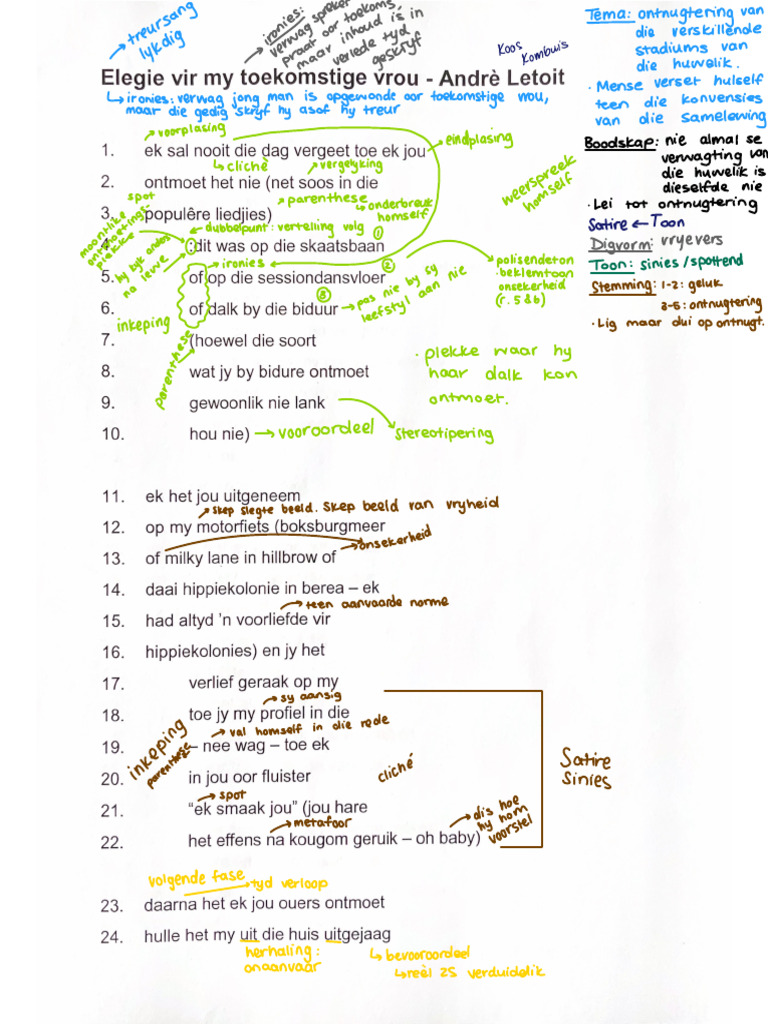 treursang
lykdig
ironies:
verwag spreker
praat oor toekoms,
maar inhoud is in
verlede tyd
geskryf
Koos
Kombuis
Elegie vir my toekomstige vrou - Andrè Letoit
↳ ironies: verwag jong man is opgewonde oor toekomstige vrou,
maar die gedig skryf hy asof hy treur
Tema: ontnugtering van
die verskillende
stadiums van
die huwelik.
· Mense verset hulself
teen die konvensies
van die samelewing
Boodskap: nie almal se
verwagting van
die huwelik is
dieselfde nie
• Lei tot ontnugtering
Satire ← Toon
Digvorm: vryevers
Toon: sinies / spottend
Stemming: 1-2: geluk
3-5: ontnugtering
• Lig maar dui op ontnugt.
voorplasing
1. ek sal nooit die dag vergeet toe ek jou
eindplasing
↳ clichè
vergelyking
2. ontmoet het nie (net soos in die
parenthese
onderbreuk
homself
weerspreek
homself
spot
3. populêre liedjies)
moontlike
ontmoetings-
plekke
dubbelpunt: vertelling volg ①
4. :dit was op die skaatsbaan
ironies
②
5. of op die sessiondansvloer
polisendeton
· beklemtoon
onsekerheid
(r. 5 & 6)
hy kyk anders
na lewe
③
6. of dalk by die biduur
→ pas nie by sy
leefstyl aan nie
inkeping
7. (hoewel die soort
parenthese
8. wat jy by bidure ontmoet
· plekke waar hy
haar dalk kon
ontmoet.
9. gewoonlik nie lank
10. hou nie) → vooroordeel
stereotipering
11. ek het jou uitgeneem
skep slegte beeld. Skep beeld van vryheid
12. op my motorfiets (boksburgmeer
13. of milky lane in hillbrow of
→ onsekerheid
14. daai hippiekolonie in berea – ek
→ teen aanvaarde norme
15. had altyd ’n voorliefde vir
16. hippiekolonies) en jy het
17. verlief geraak op my
→ sy aansig
18. toe jy my profiel in die
inkeping
parenthese
→ val homself in die rede
19. – nee wag – toe ek
20. in jou oor fluister
cliché
Satire
Sinies
→ spot
21. “ek smaak jou” (jou hare
→ metafoor
22. het effens na kougom geruik – oh baby)
→ dis hoe
hy hom
voorstel
volgende fase
→ tyd verloop
23. daarna het ek jou ouers ontmoet
24. hulle het my uit die huis uitgejaag
herhaling:
onaanvaar
↳ bevooroordeel
↳ reël 25 verduidelik